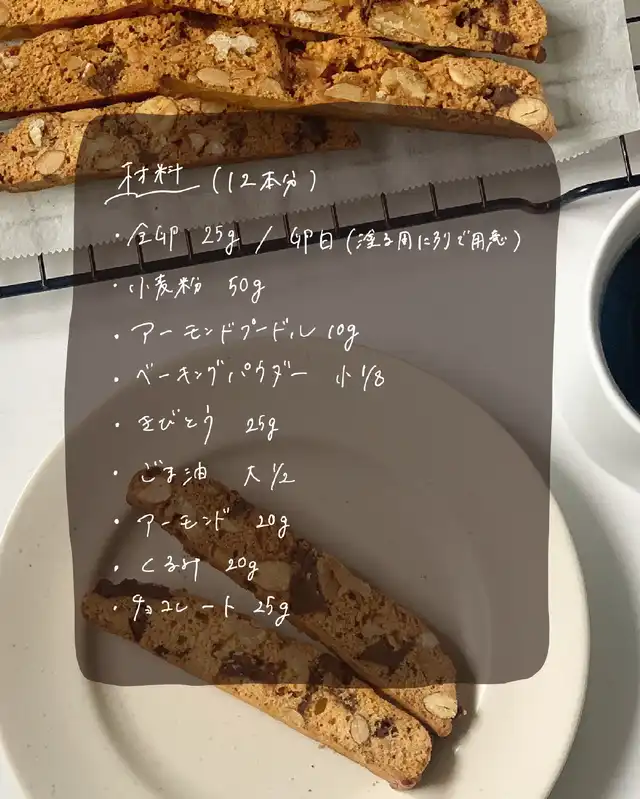 材料 (12本分)
・全卵 25g / 卵白 (塗る用に別で用意)
・小麦粉 50g
・アーモンドプードル 10g
・ベーキングパウダー 小1/8
・きびとう 25g
・ごま油 大1/2
・アーモンド 20g
・くるみ 20g
・チョコレート 25g